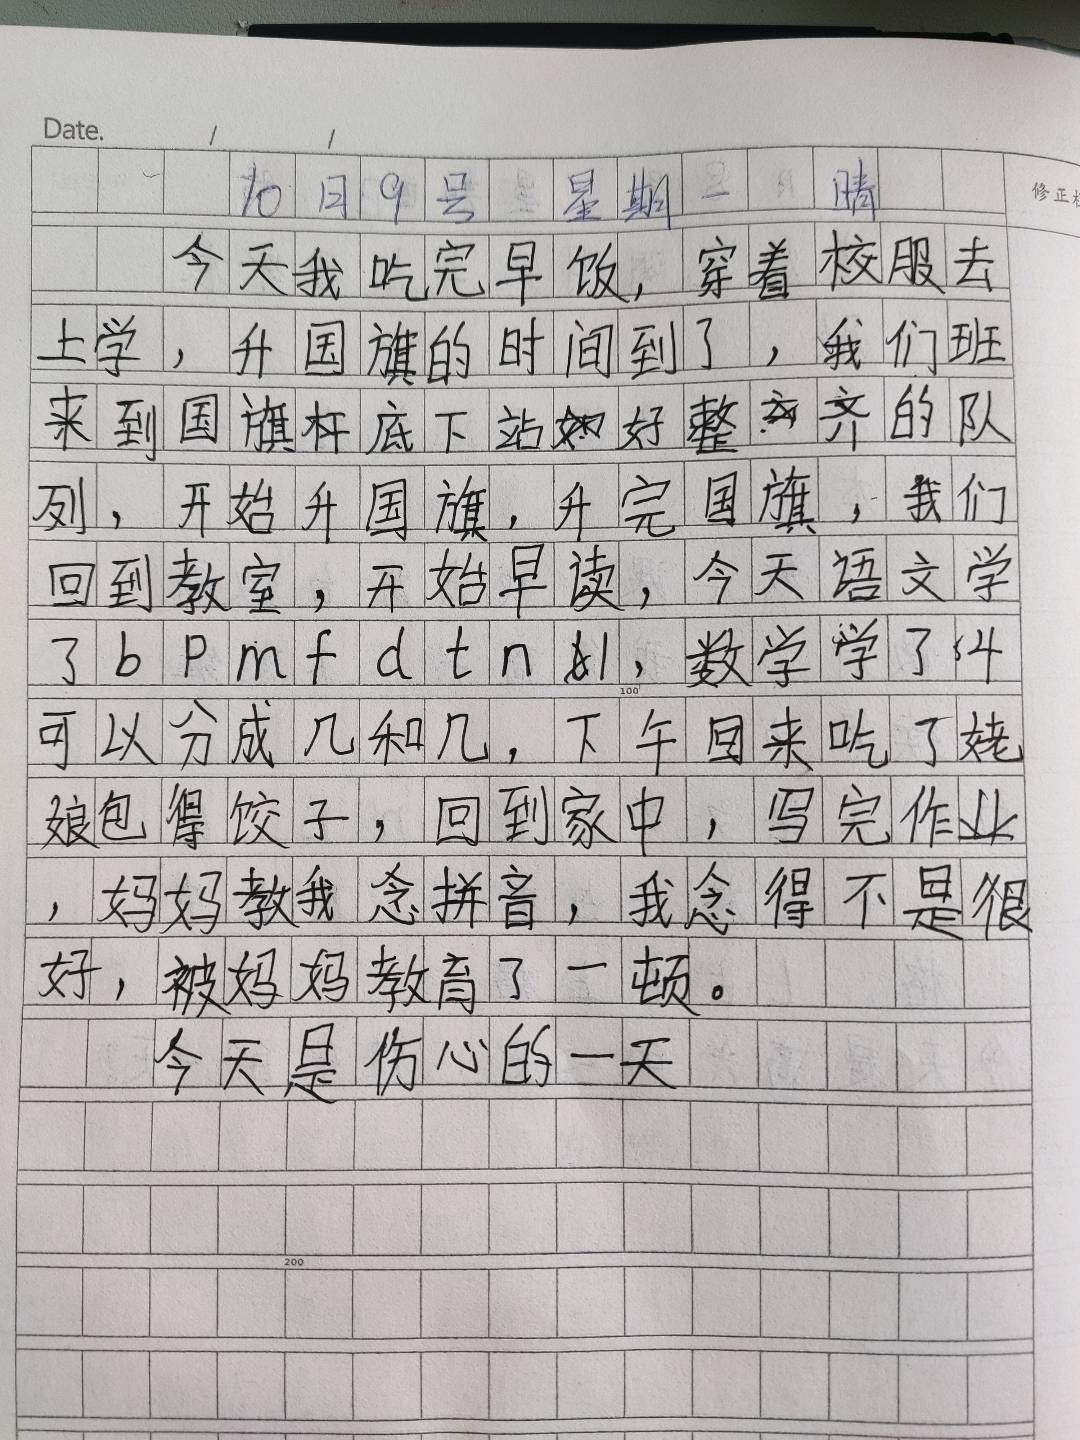 Date. / /
10日9号 星期一 晴
修正
今天我吃完早饭，穿着校服去
上学，升国旗的时间到了，我们班
来到国旗杆底下站好整齐的队
列，开始升国旗，升完国旗，我们
回到教室，开始早读，今天语文学
了bpmfdtnl，数学学了4
100
可以分成几和几，下午回来吃了姥
娘包得饺子，回到家中，写完作业
，妈妈教我念拼音，我念得不是很
好，被妈妈教育了一顿。
今天是伤心的一天
200